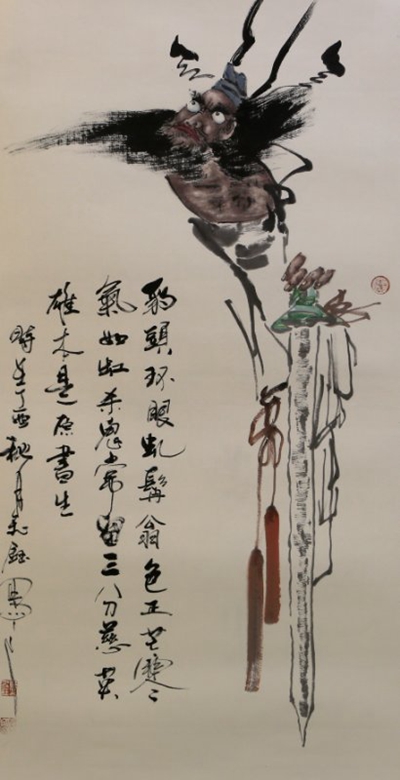 豹頭环眼虬髯翁色正芒寒
氣如虹杀鬼常留三分慈英
雄本是書生
時在丁酉秋月